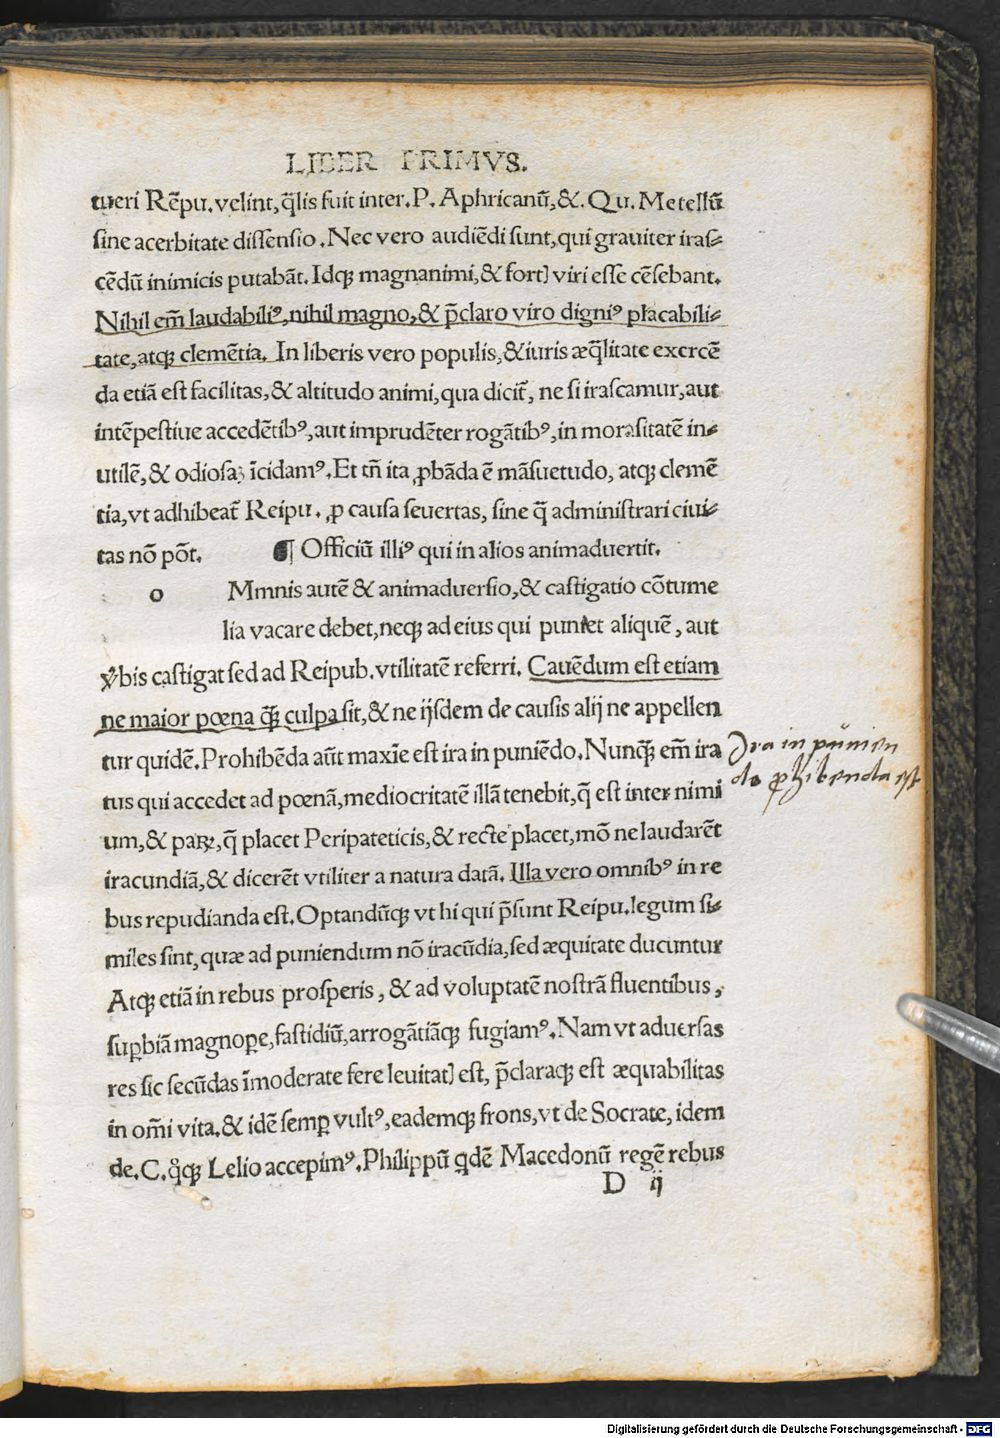 LIBER PRIMVS.
tueri Rēpu. velint, q̄lis fuit inter. P. Aphricanū, &. Qu. Metellū
sine acerbitate dissensio. Nec vero audiēdi sunt, qui grauiter iras-
cēdū inimicis putabāt. Idqꝫ magnanimi, & fortꝭ viri esse cēsebant.
Nihil em̄ laudabiliꝰ, nihil magno, & p̄claro viro digniꝰ placabili-
tate, atqꝫ clemētia. In liberis vero populis, & iuris æq̄litate exercē
da etiā est facilitas, & altitudo animi, qua dicit̄, ne si irascamur, aut
intēpestiue accedētibꝰ, aut imprudēter rogātibꝰ, in morasitatē in-
utilē, & odiosaꝫ īcidamꝰ. Et tn̄ ita ꝓbāda ē māsuetudo, atqꝫ clemē
tia, vt adhibeat̄ Reipu. ꝓ causa seuertas, sine q̄ administrari ciui-
tas nō pōt. ¶ Officiū illiꝰ qui in alios animaduertit.
o Mmnis autē & animaduersio, & castigatio cōtume
lia vacare debet, neqꝫ ad eius qui puniet aliquē, aut
v̄bis castigat sed ad Reipub. vtilitatē referri. Cauēdum est etiam
ne maior pœna qꝫ̄ culpa sit, & ne ijsdem de causis alij ne appellen
tur quidē. Prohibēda aūt maxīe est ira in puniēdo. Nunqꝫ̄ em̄ ira
tus qui accedet ad pœnā, mediocritatē illā tenebit, q̄ est inter nimi
um, & paꝝ, q̄ placet Peripateticis, & recte placet, mō ne laudarēt
iracundiā, & dicerēt vtiliter a natura datā. Illa vero omnibꝰ in re
bus repudianda est. Optandūqꝫ vt hi qui p̄sunt Reipu. legum si-
miles sint, quæ ad puniendum nō iracūdia, sed æquitate ducuntur
Atqꝫ etiā in rebus prosperis, & ad voluptatē nostrā fluentibus,
suꝑbiā magnoꝑe, fastidiū, arrogātiāqꝫ fugiamꝰ. Nam vt aduersas
res sic secūdas īmoderate fere leuitatꝭ est, p̄claraqꝫ est æquabilitas
in om̄i vita. & idē semꝑ vultꝰ, eademqꝫ frons, vt de Socrate, idem
de. C. qͦqꝫ Lelio accepimꝰ. Philippū qdē Macedonū regē rebus
D ij
Ira in punien
do ꝓhibenda est
Digitalisierung gefördert durch die Deutsche Forschungsgemeinschaft - DFG